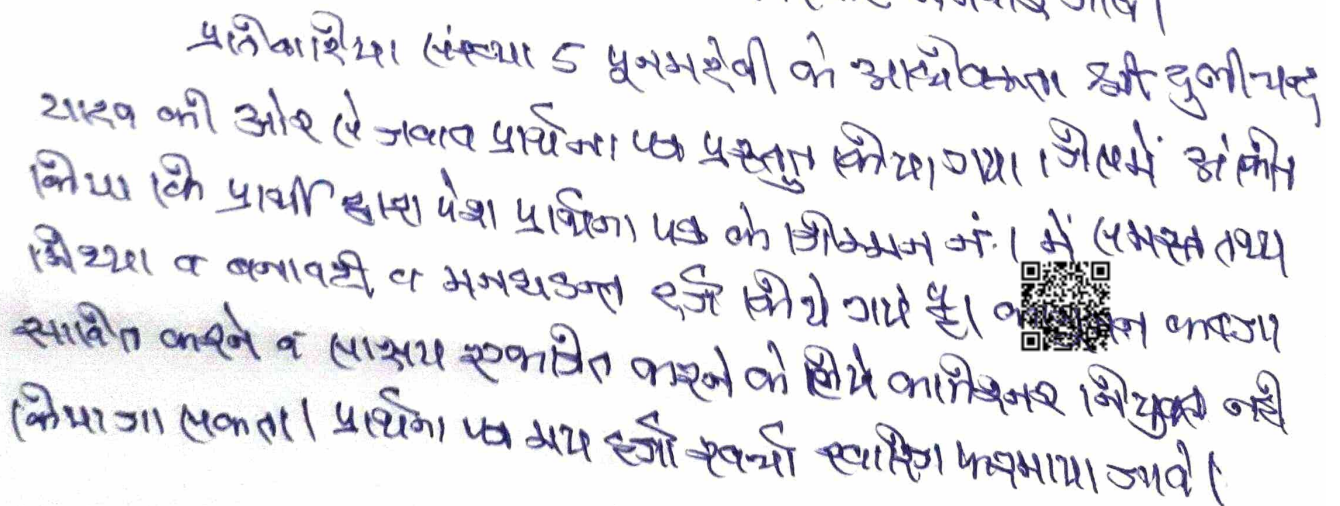 प्रतिवादिया संख्या 5 पूनमदेवी के अधिवक्ता श्री दुलीचन्द
यादव की ओर से जवाब प्रार्थना पत्र प्रस्तुत किया गया। जिसमें अंकित
किया कि प्रार्थी द्वारा पेश प्रार्थना पत्र के जिम्मन नं. 1 में समस्त तथ्य
मिथ्या व बनावटी व मनगढन्त दर्ज किये गये है। कब्जा
साबित करने व साक्ष्य एकत्रित करने के लिये कमिश्नर नियुक्त नही
किया जा सकता। प्रार्थना पत्र मय हर्जा खर्चा खारिज फरमाया जावे।